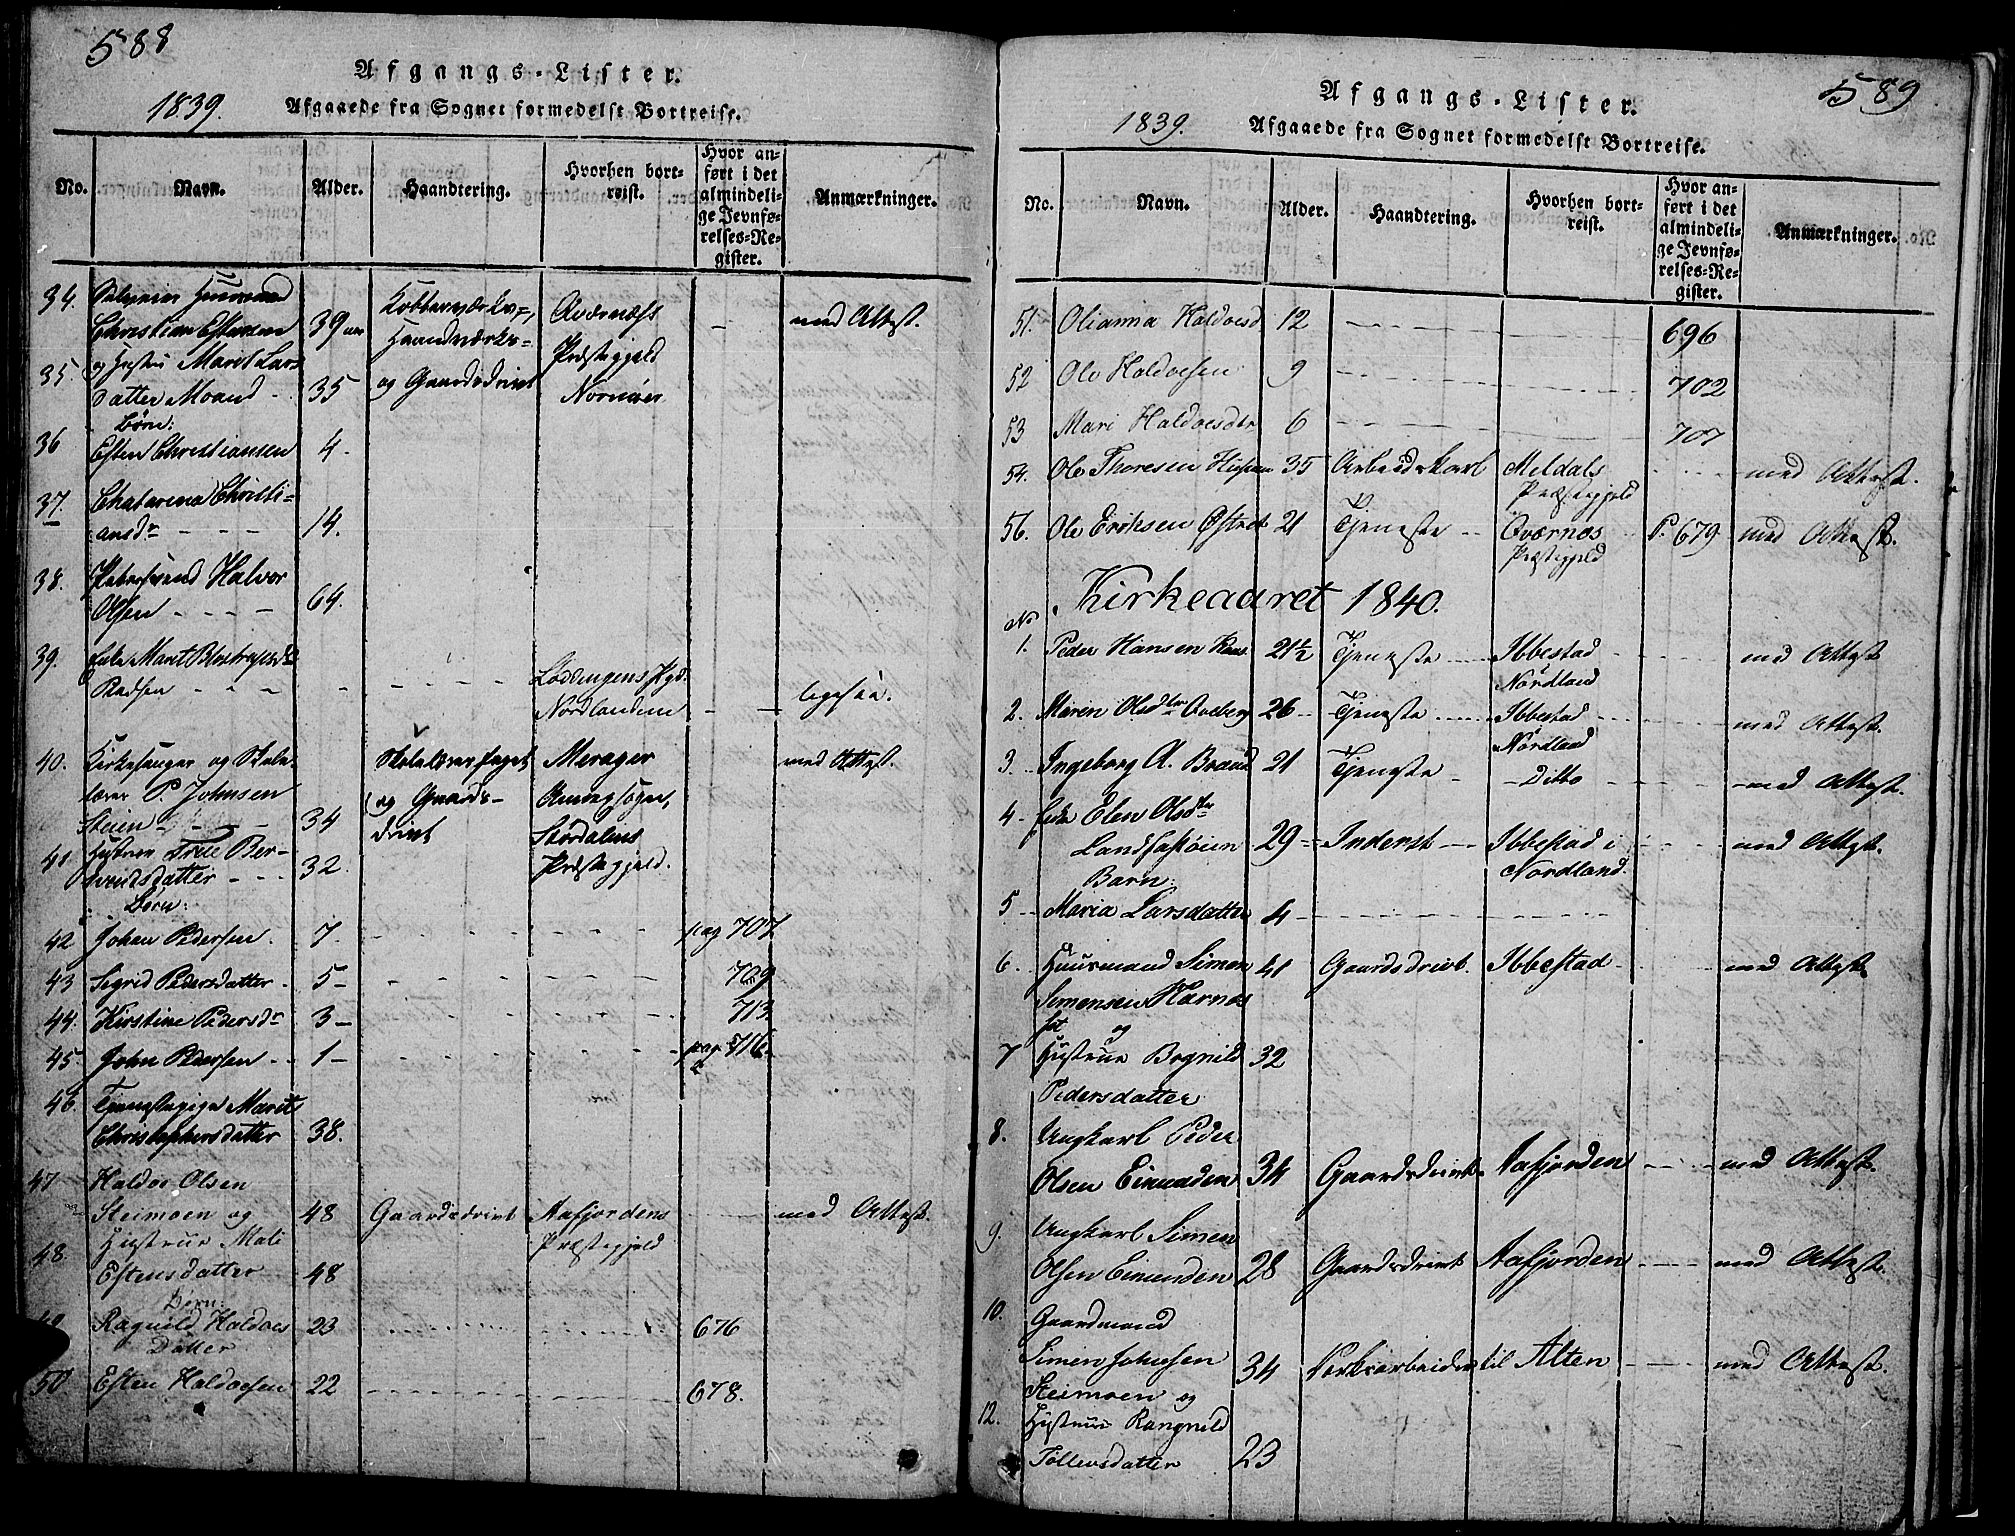 588
Afgangs-Lister.
1839. Afgaaede fra Sognet formedelst Bortreise.
No. Navn. Alder. Haandtering. Hvorhen bortreist. Hvor anført i det almindelige Jevnførelses-Register. Anmærkninger.
34. Christian Estensen 39 aar Kobberværks-, Haandværks- og Gaardsdrivt Præstegjeld med Attest.
35. og Hustru Marit Larsdatter Moand 35
Børn:
36 Esten Christiansen 4.
37. Chatarina Christiansdr 14.
38. Halvor Olsen 64.
39. Enke Marit Lødingens Pgd. Nordlandene ligesaa.
40. Kirkesanger og Skolelærer P. Johnsen Steien 34 og Gaardsdrivt Merager Annexsogn, Stördalens Præstegjeld. med Attest.
41 Hustrue Berentsdatter 32.
Børn:
42 Johan Pedersen. 7. pag 707.
43 Sigrid Pedersdatter 5 709
44. Kirstine Pedersdr 3 713.
45 John Pedersen 1 pag 716.
46. Tjenestepige Marit Christophersdatter 38.
47 Haldor Olsen Steimoen og 48 Gaardsdrivt Aafjordens Præstegjeld med Attest.
48. Hustrue Mali Estensdatter 48
Børn:
Ragnild Haldors Datter 23 676
50 Esten Haldorsen 22 678.
589
Afgangs-Lister.
1839. Afgaaede fra Sognet formedelst Bortreise.
No. Navn. Alder. Haandtering. Hvorhen bortreist. Hvor anført i det almindelige Jevnførelses-Register. Anmærkninger.
51. Olianna Haldorsd 12 696
52 Ole Haldorsen 9 702
53 Mari Haldorsdtr 6 707
54. Ole Thoresen 35 Arbeidskarl Meldals Præstegjeld med Attest.
56. Ole Eriksen 21 Tjeneste Qværnæs Præstegjeld P. 679. med Attest.
Kirkeaaret 1840.
No
1. Peder Hansen 21½ Tjeneste Ibbestad Nordland med Attest
2. Maren Olsdtr 26 Tjeneste Ibbestad Nordland med Attest.
3. Ingeborg A. 21 Tjeneste Ditto med Attest.
4 Elen Olsdtr 29 Inderst Ibbestad i Nordland. med Attest.
Barn:
5 Maria Larsdatter 4
6. Huusmand Simen Simensen 41 Gaardsdrivt. Ibbestad med Attest
og
7 Hustrue Pedersdatter 32
8. Ungkarl Peder Olsen Einunden 34 Gaardsdrivt Aafjorden med Attest
9. Ungkarl Simen Olsen Einunden 28 Gaardsdrivt Aafjorden med Attest.
10. Gaardmand Simen Johnsen Steimoen og 34 til Alten med Attest.
12. Hustrue Rangnild Tollevsdatter 23